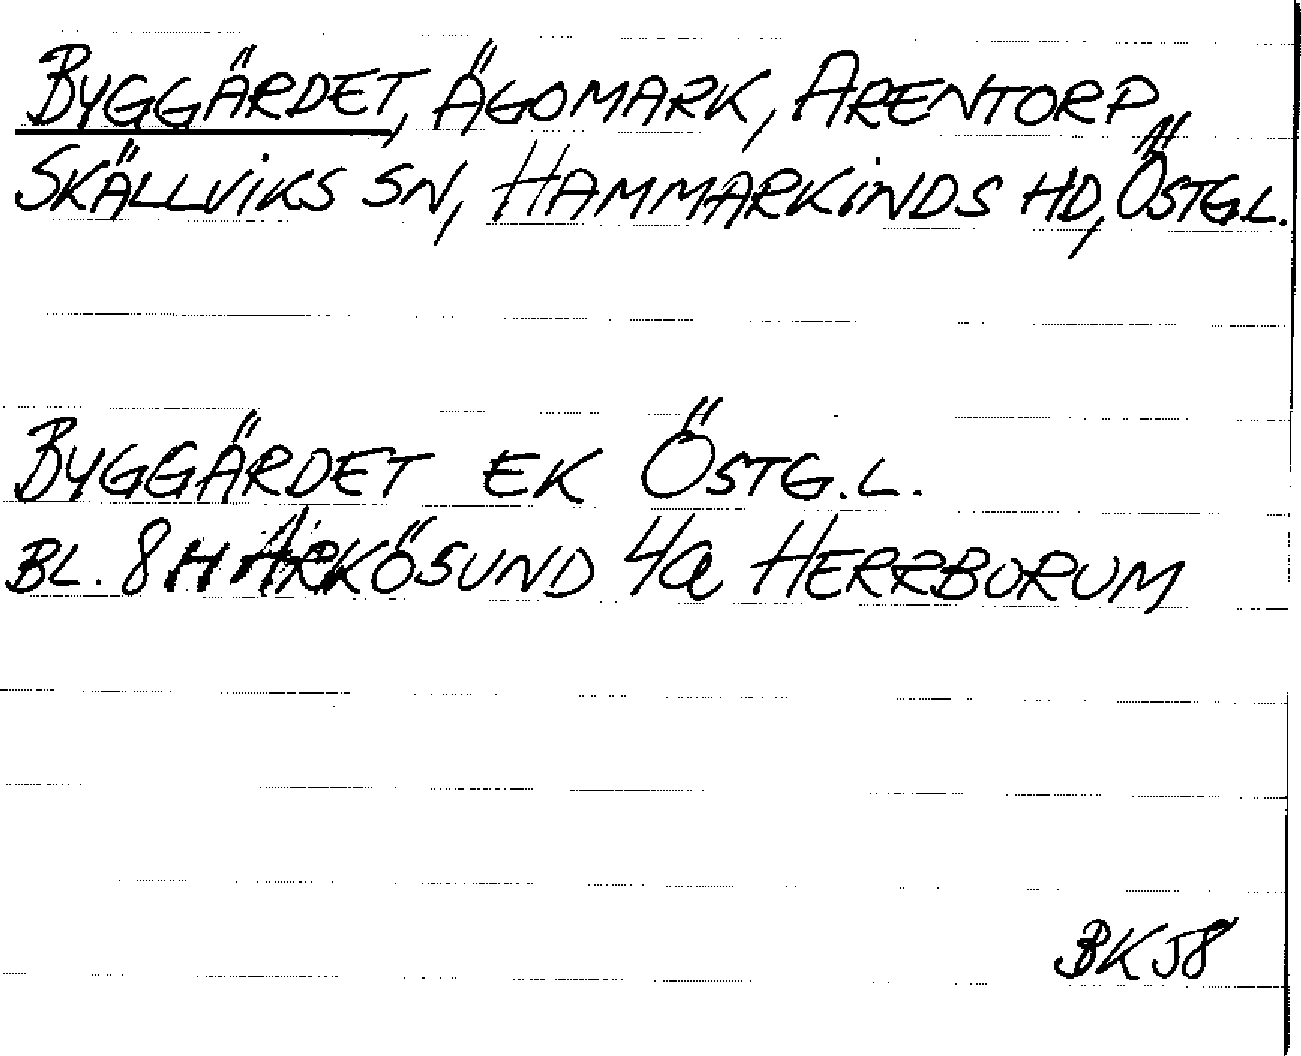 BYGGÄRDET, ÄGOMARK, ARENTORP,
SKÄLLVIKS SN, HAMMARKINDS HD, ÖSTG.L.
BYGGÄRDET EK ÖSTG.L.
BL. 8 H ARKÖSUND 4a HERRBORUM
BKJ8